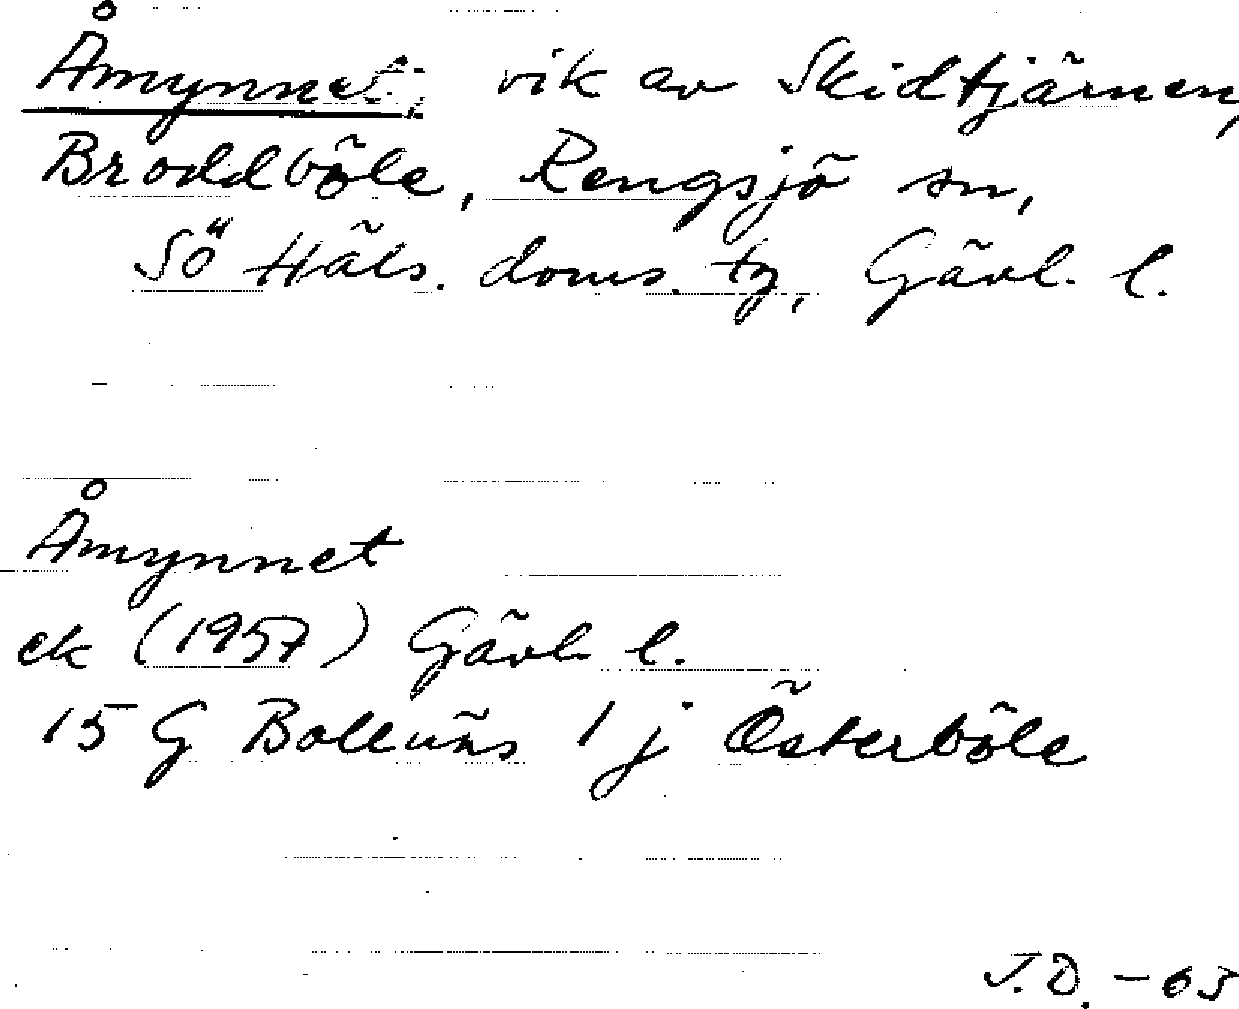 Åmynnet, vik av Skidtjärnen,
Broddböle, Rengsjö sn,
Sö Häls. doms. tg, Gävl. l.
Åmynnet
ek (1957) Gävl. l.
15 G Bollnäs 1 j Österböle
J.D. - 63